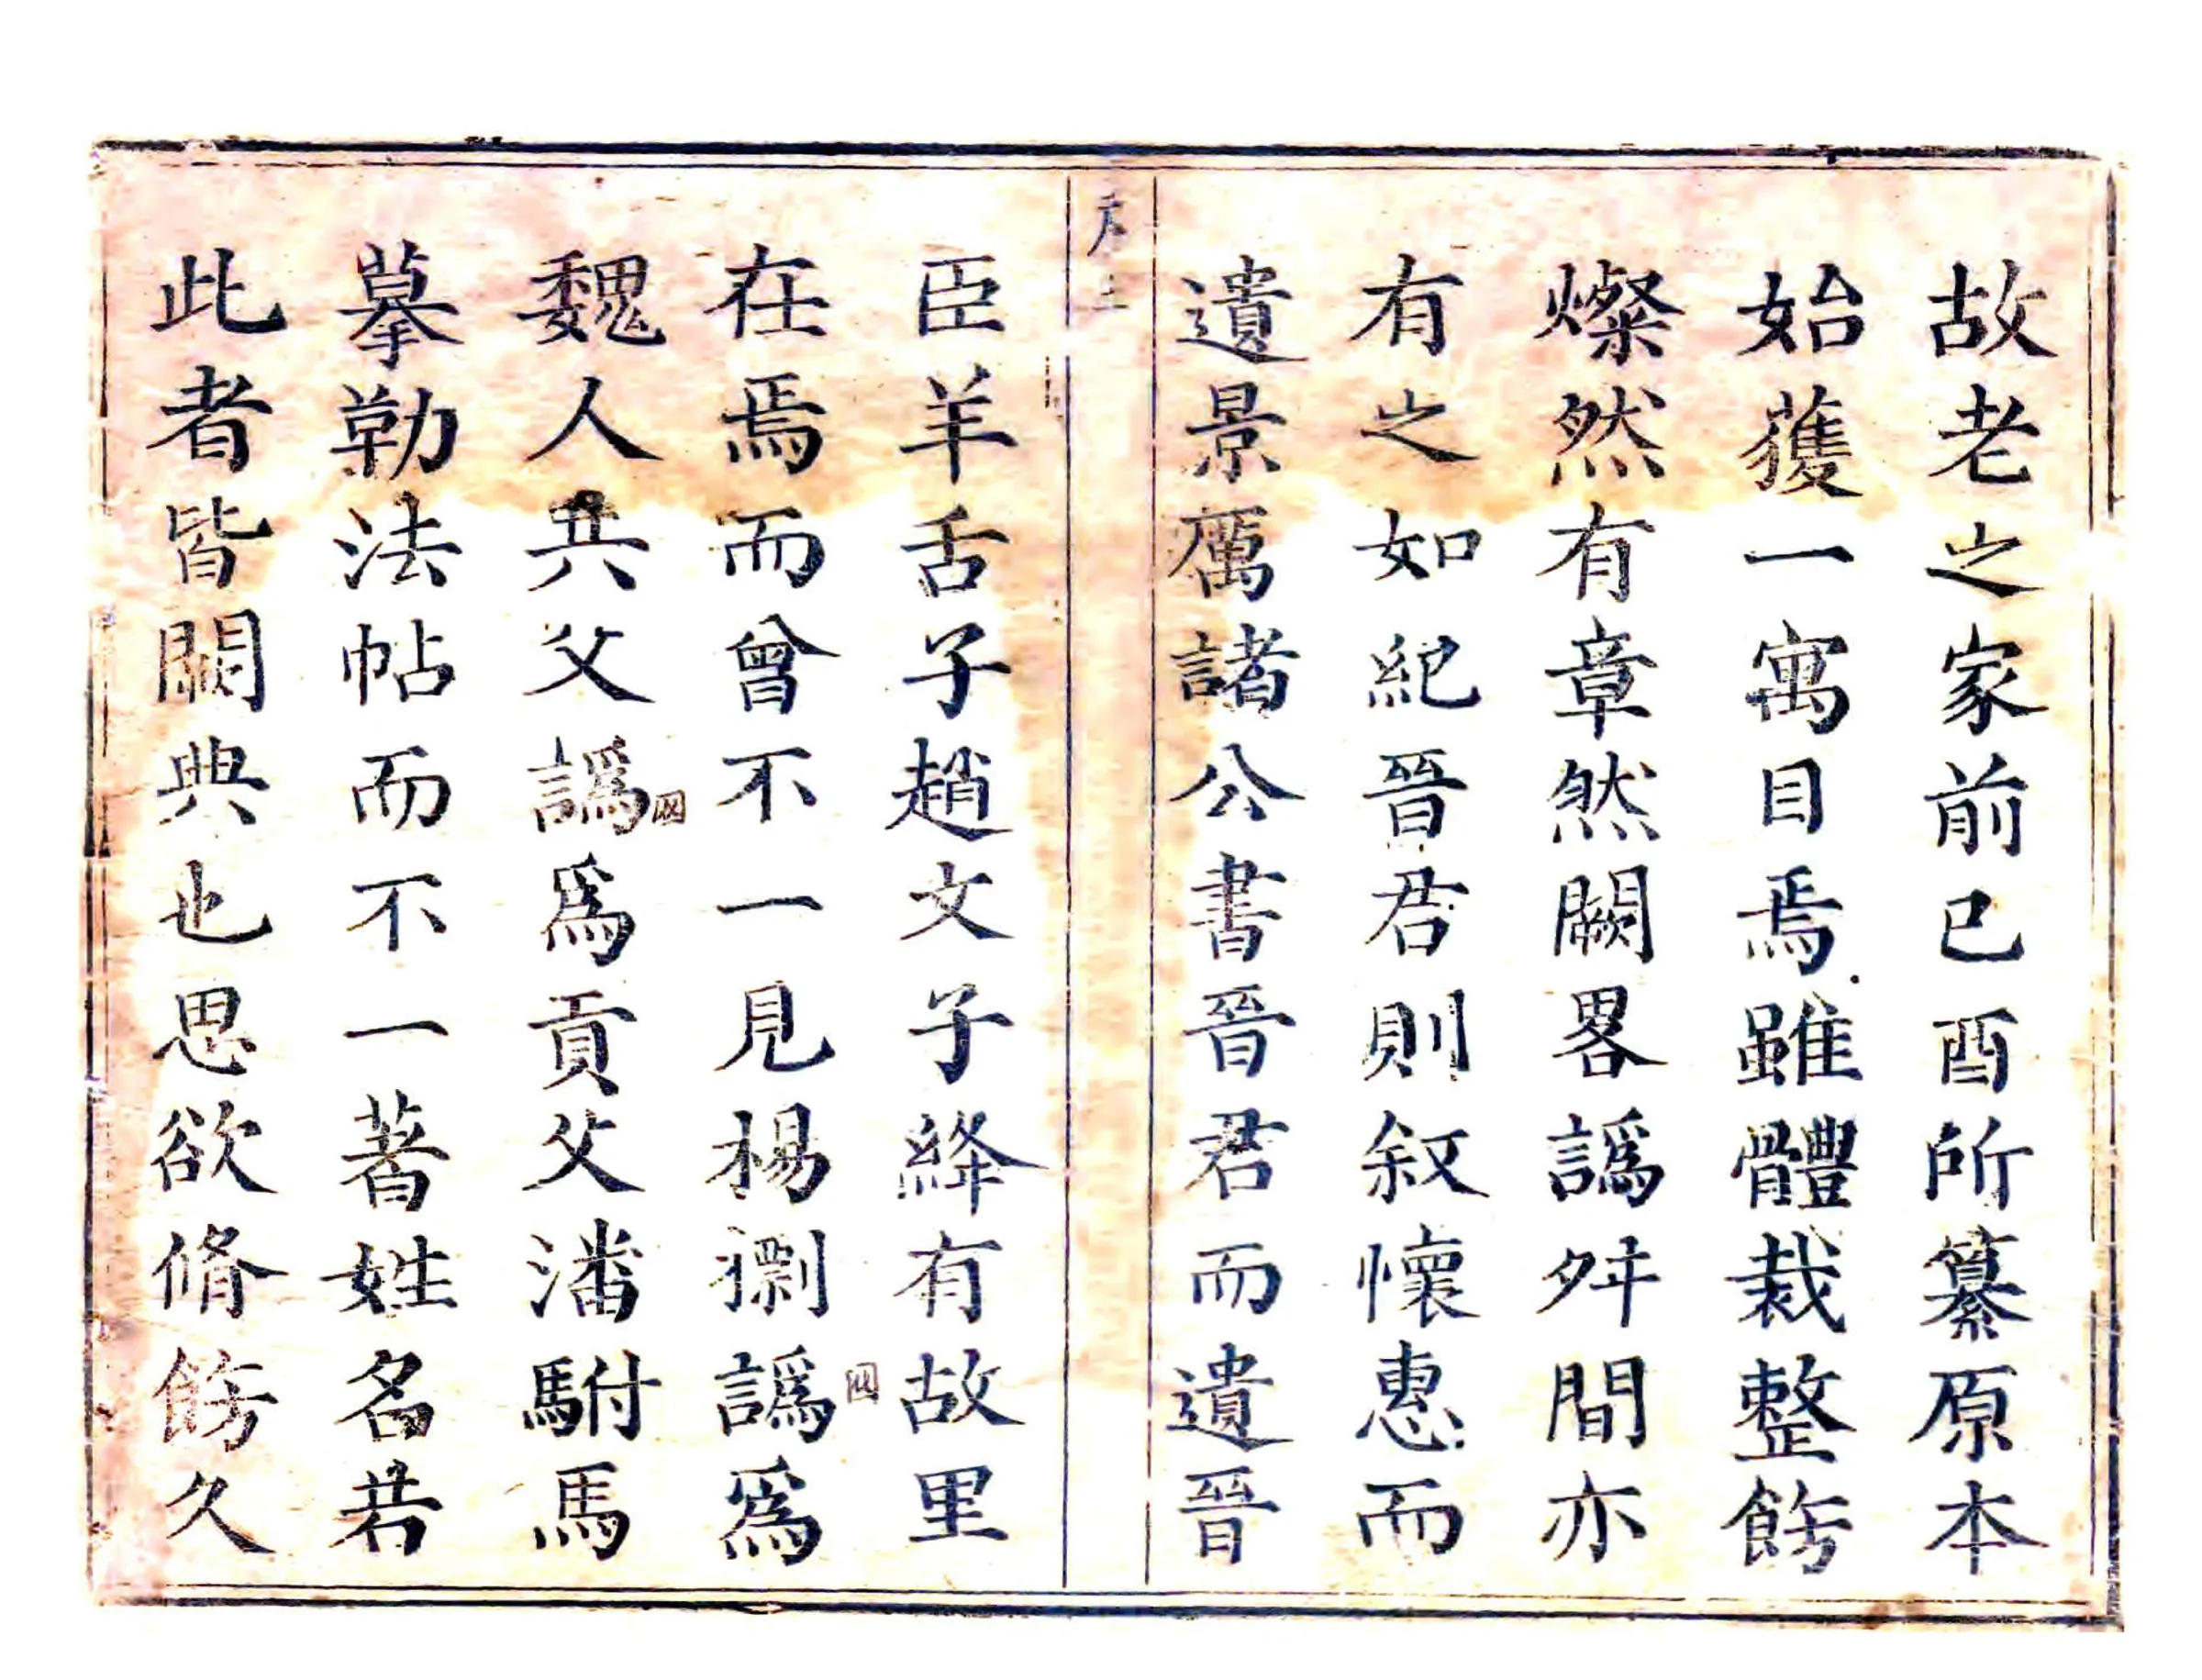 故老之家前己酉所纂原本
始獲一寓目焉雖體裁整飭
燦然有章然闕畧譌舛間亦
有之如紀晉君則叙懷惠而
遺景厲諸公書晉君而遺晉
序
臣羊舌子趙文子絳有故里
在焉而曾不一見楊掤譌爲
魏人共父譌爲貢父潘駙馬
摹勒法帖而不一著姓名若
此者皆闕典也思欲脩飭久